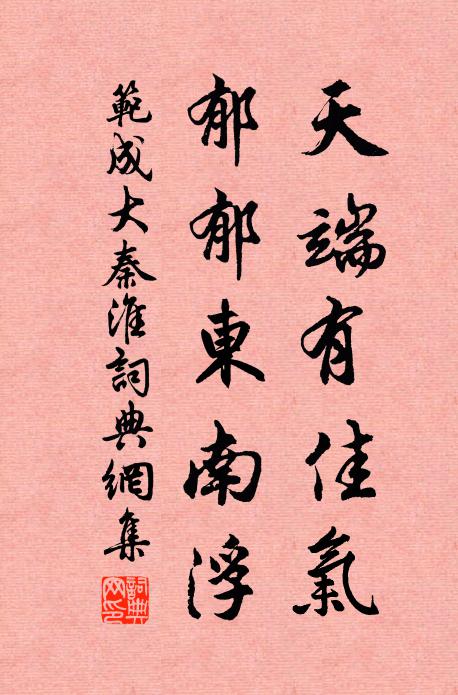 天端有佳氣
郁郁東南浮
範成大秦淮詞典網集
詞典網印